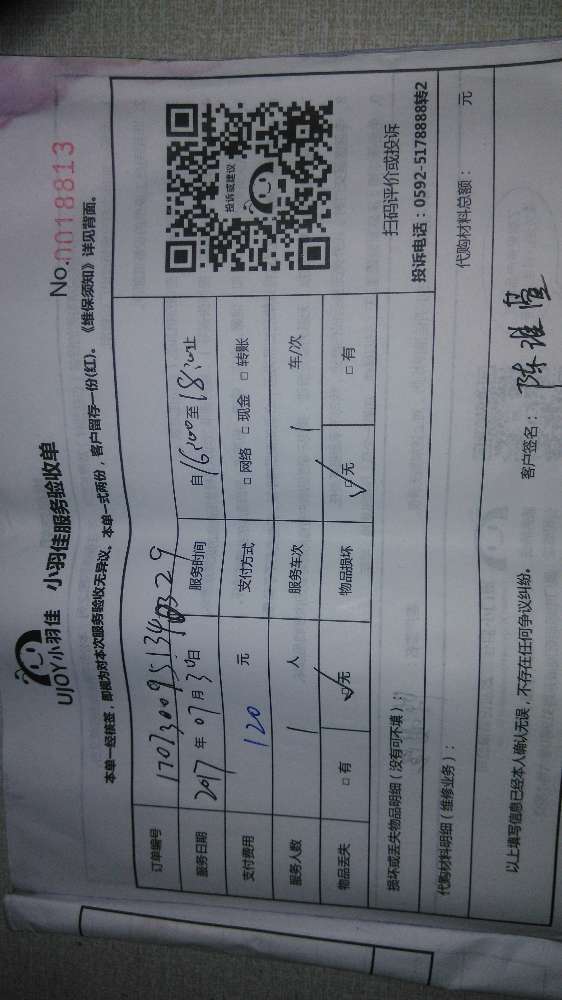 UJOY小羽佳 小羽佳服务验收单
No.0018813
本单一经核签，即视为对本次服务验收无异议、本单一式两份，客户留存一份(红)。《维保须知》详见背面。
订单编号 17073009513460329
服务日期 2017年07月30日 服务时间 自16:00至18:00止
支付费用 120 元 支付方式 □网络 □现金 □转账
服务人数 1 人 服务车次 1 车/次
物品丢失 □有 ☑无 物品损坏 ☑无 □有
投诉或建议
扫码评价或投诉
投诉电话：0592-5178888转2
损坏或丢失物品明细（没有可不填）：
代购材料明细（维修业务）：
代购材料总额： 元
以上填写信息已经本人确认无误，不存在任何争议纠纷。
客户签名：陈雅萱